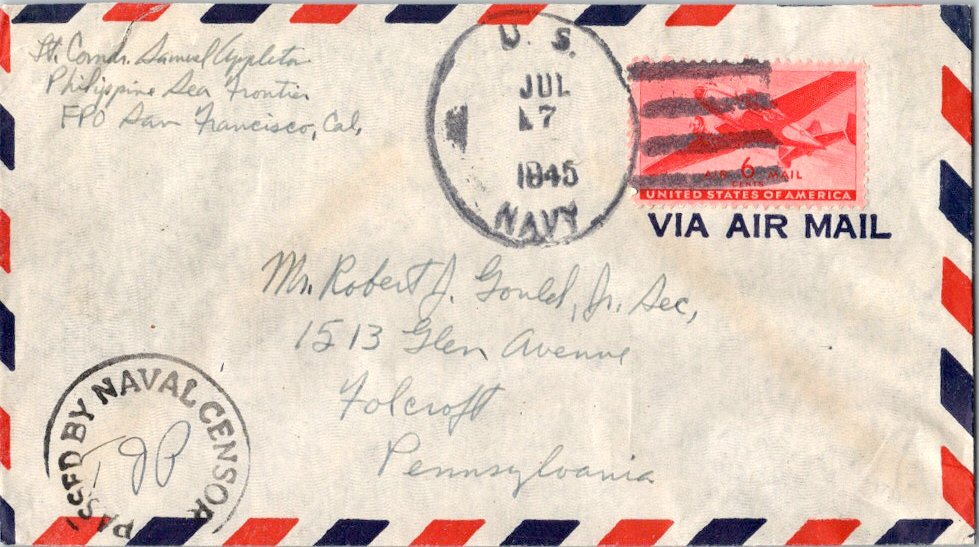 Lt. Comdr. Samuel Appleton
Philippine Sea Frontier
FPO San Francisco, Cal.
U. S.
JUL
17
1945
NAVY
AIR 6 MAIL
CENTS
UNITED STATES OF AMERICA
VIA AIR MAIL
Mr. Robert J. Gould, Jr. Sec,
1513 Glen Avenue
Folcroft
Pennsylvania
PASSED BY NAVAL CENSOR